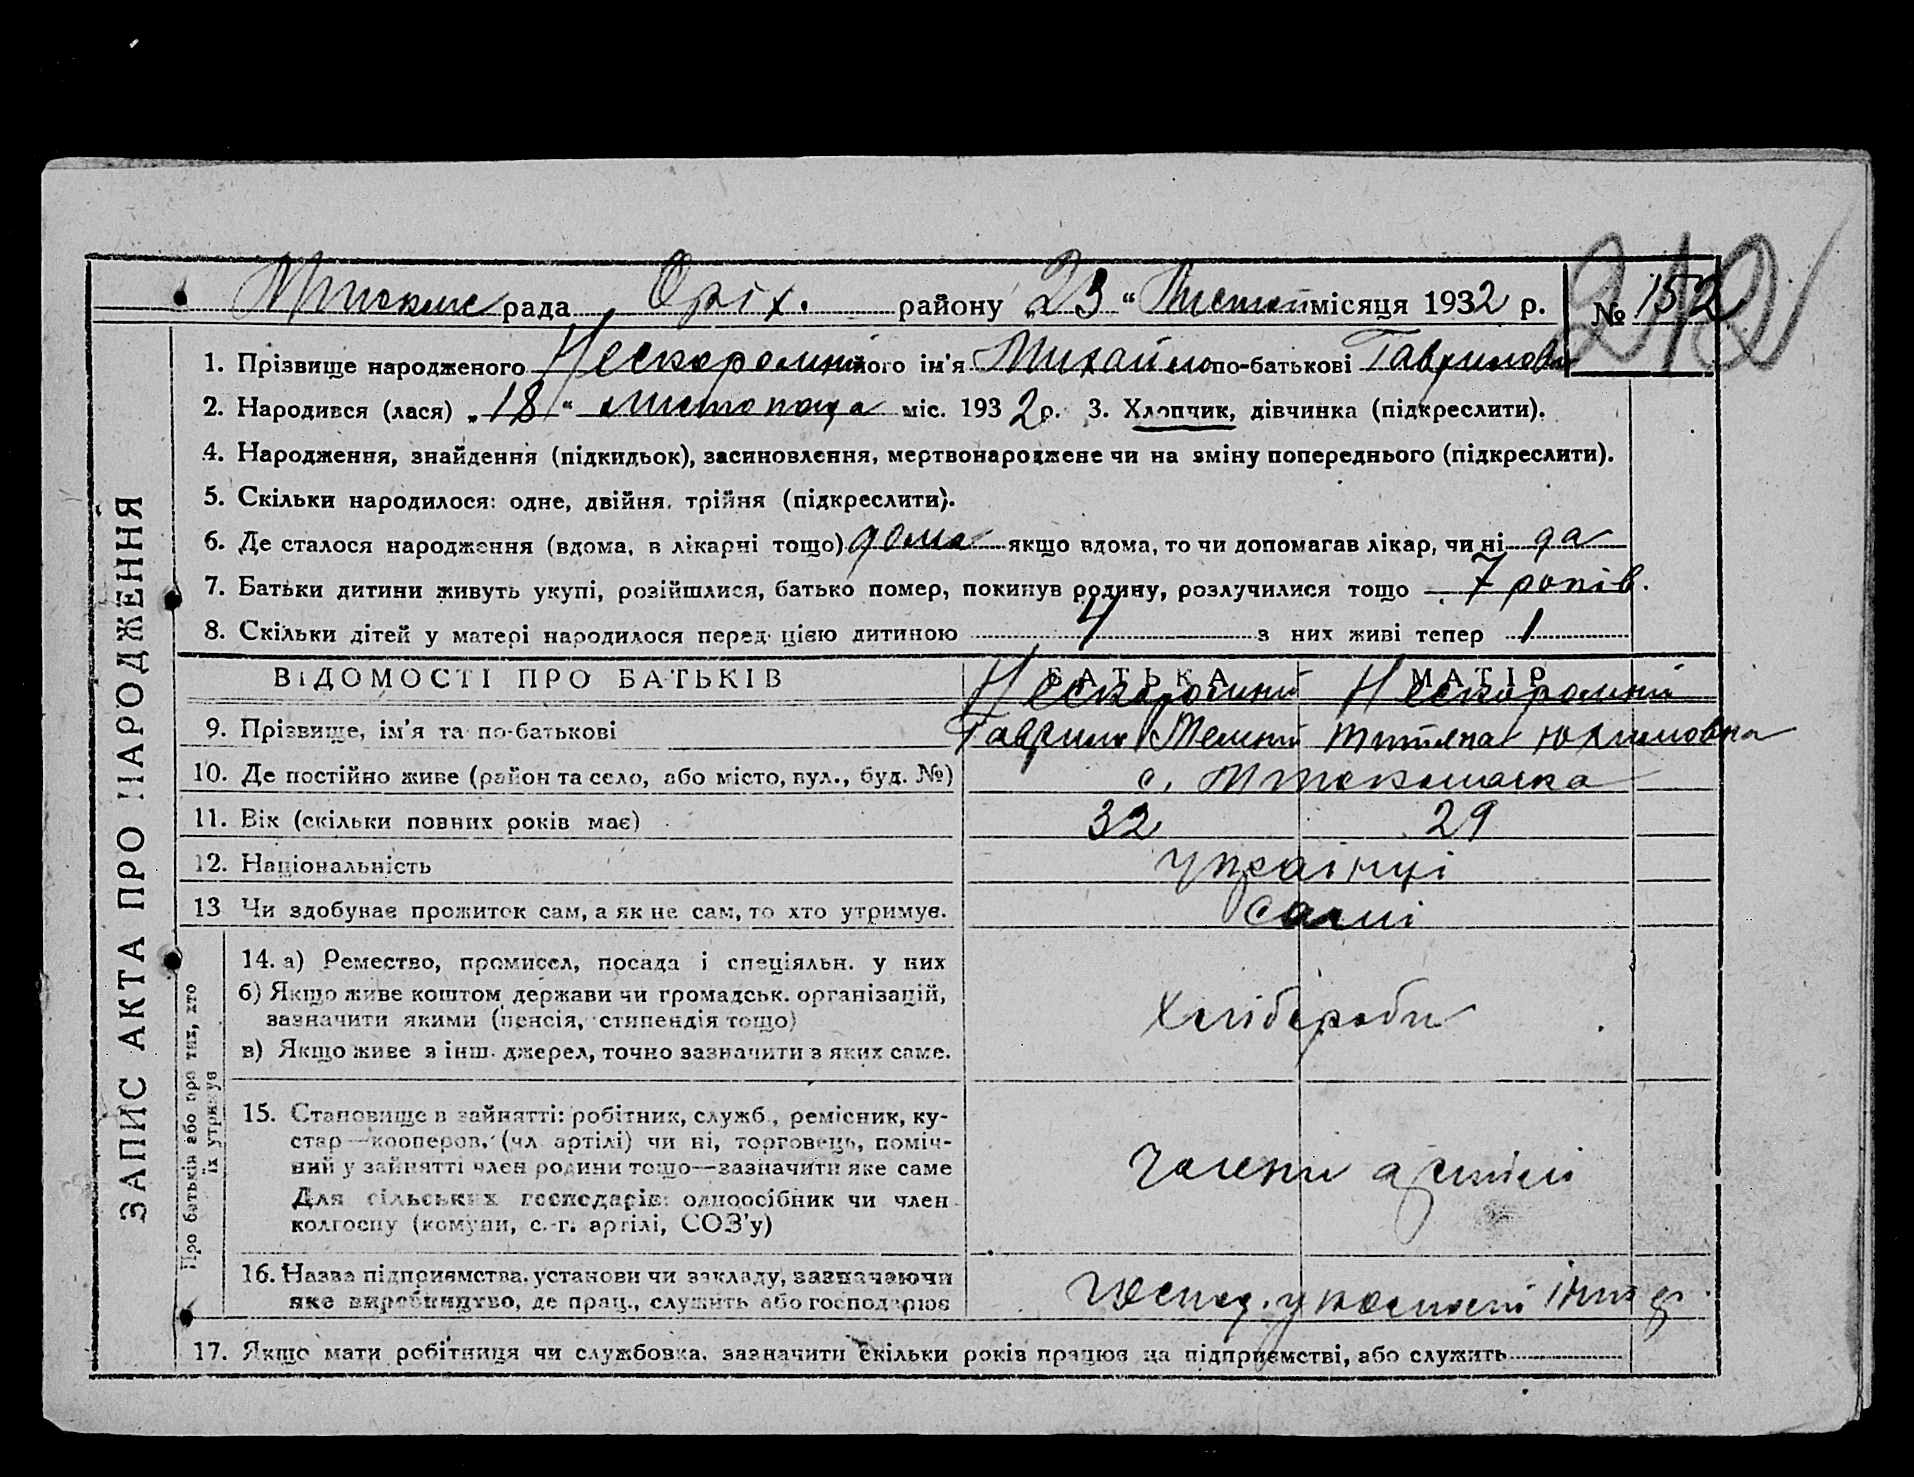 рада Оріх. району „23“ Листоп місяця 1932 р. № 152
212
1. Прізвище народженого Нескоромний його ім'я Михайло по-батькові Гаврилови
2. Народився (лася) „18“ листопада міс. 1932 р. 3. Хлопчик, дівчинка (підкреслити).
4. Народження, знайдення (підкидьок), засиновлення, мертвонароджене чи на зміну попереднього (підкреслити).
5. Скільки народилося: одне, двійня, трійня (підкреслити).
6. Де сталося народження (вдома, в лікарні тощо) дома якщо вдома, то чи допомагав лікар, чи ні да
7. Батьки дитини живуть укупі, розійшлися, батько помер, покинув родину, розлучилися тощо 7 років.
8. Скільки дітей у матері народилося перед цією дитиною 4 з них живі тепер 1
ВІДОМОСТІ ПРО БАТЬКІВ БАТЬКА МАТІР
Нескоромний Нескоромний
9. Прізвище, ім'я та по-батькові Гаврило Тетяна Юхимовна
10. Де постійно живе (район та село, або місто, вул., буд. №) с.
11. Вік (скільки повних років має) 32 29
12. Національність українці
13 Чи здобуває прожиток сам, а як не сам, то хто утримує. самі
14. а) Ремество, промисел, посада і спеціяльн. у них
б) Якщо живе коштом держави чи громадськ. організацій,
зазначити якими (пенсія, стипендія тощо)
хлібороби
в) Якщо живе з інш. джерел, точно зазначити з яких саме.
15. Становище в зайнятті: робітник, служб., ремісник, ку-
стар—кооперов. (чл. артілі) чи ні, торговець, поміч-
ний у зайнятті член родини тощо—зазначити яке саме
члени артілі
Для сільських господарів: одноосібник чи член
колгоспу (комуни, с.-г. артілі, СОЗ'у)
16. Назва підприємства, установи чи закладу, зазначаючи
яке виробництво, де прац., служить або господарює
господ. у
17. Якщо мати робітниця чи службовка, зазначити скільки років працює на підприємстві, або служить
ЗАПИС АКТА ПРО НАРОДЖЕННЯ
Про батьків або про тих, хто
їх утримує